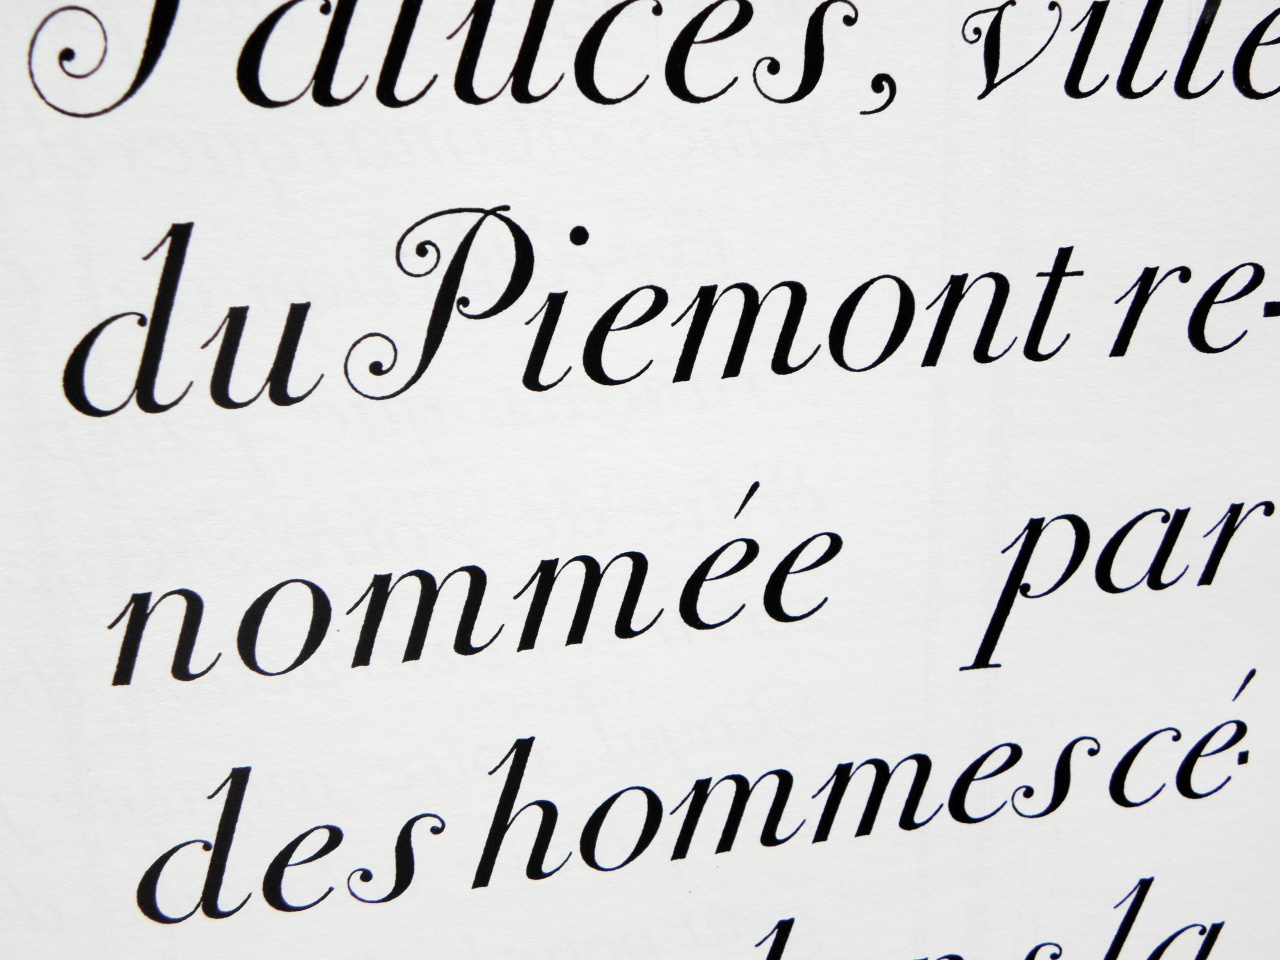 Saluces, ville
du Piemont re-
nommée par
des hommes cé-
la